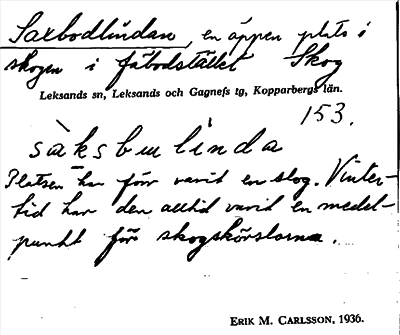 Saxbodlindan, en öppen plats i
skogen i fäbodstället Skog
Leksands sn, Leksands och Gagnefs tg, Kopparbergs län.
153.
sàksbulinda
Platsen har förr varit en slog. Vinter-
tid har den alltid varit en medel-
punkt för skogskörslorna.
ERIK M. CARLSSON, 1936.